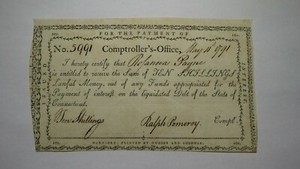 FOR THE PAYMENT OF
No. 5991 Comptroller's-Office, May 1791
I hereby certify that Payne
is entitled to receive the Sum of TEN SHILLINGS
Lawful Money, out of any Funds appropriated for the
Payment of Interest on the Liquidated Debt of the State of
Connecticut.
Ten Shillings Ralph Pomeroy Compt.
HARTFORD: PRINTED BY HUDSON AND GOODWIN.